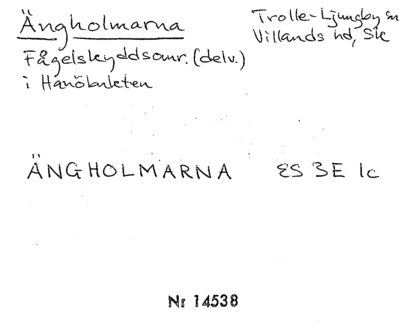 Ängholmarna
Trolle-Ljungby sn
Villands hd, Sk
Fågelskyddsomr. (delv.)
i Hanöbukten
ÄNGHOLMARNA ES 3E 1c
Nr 14538